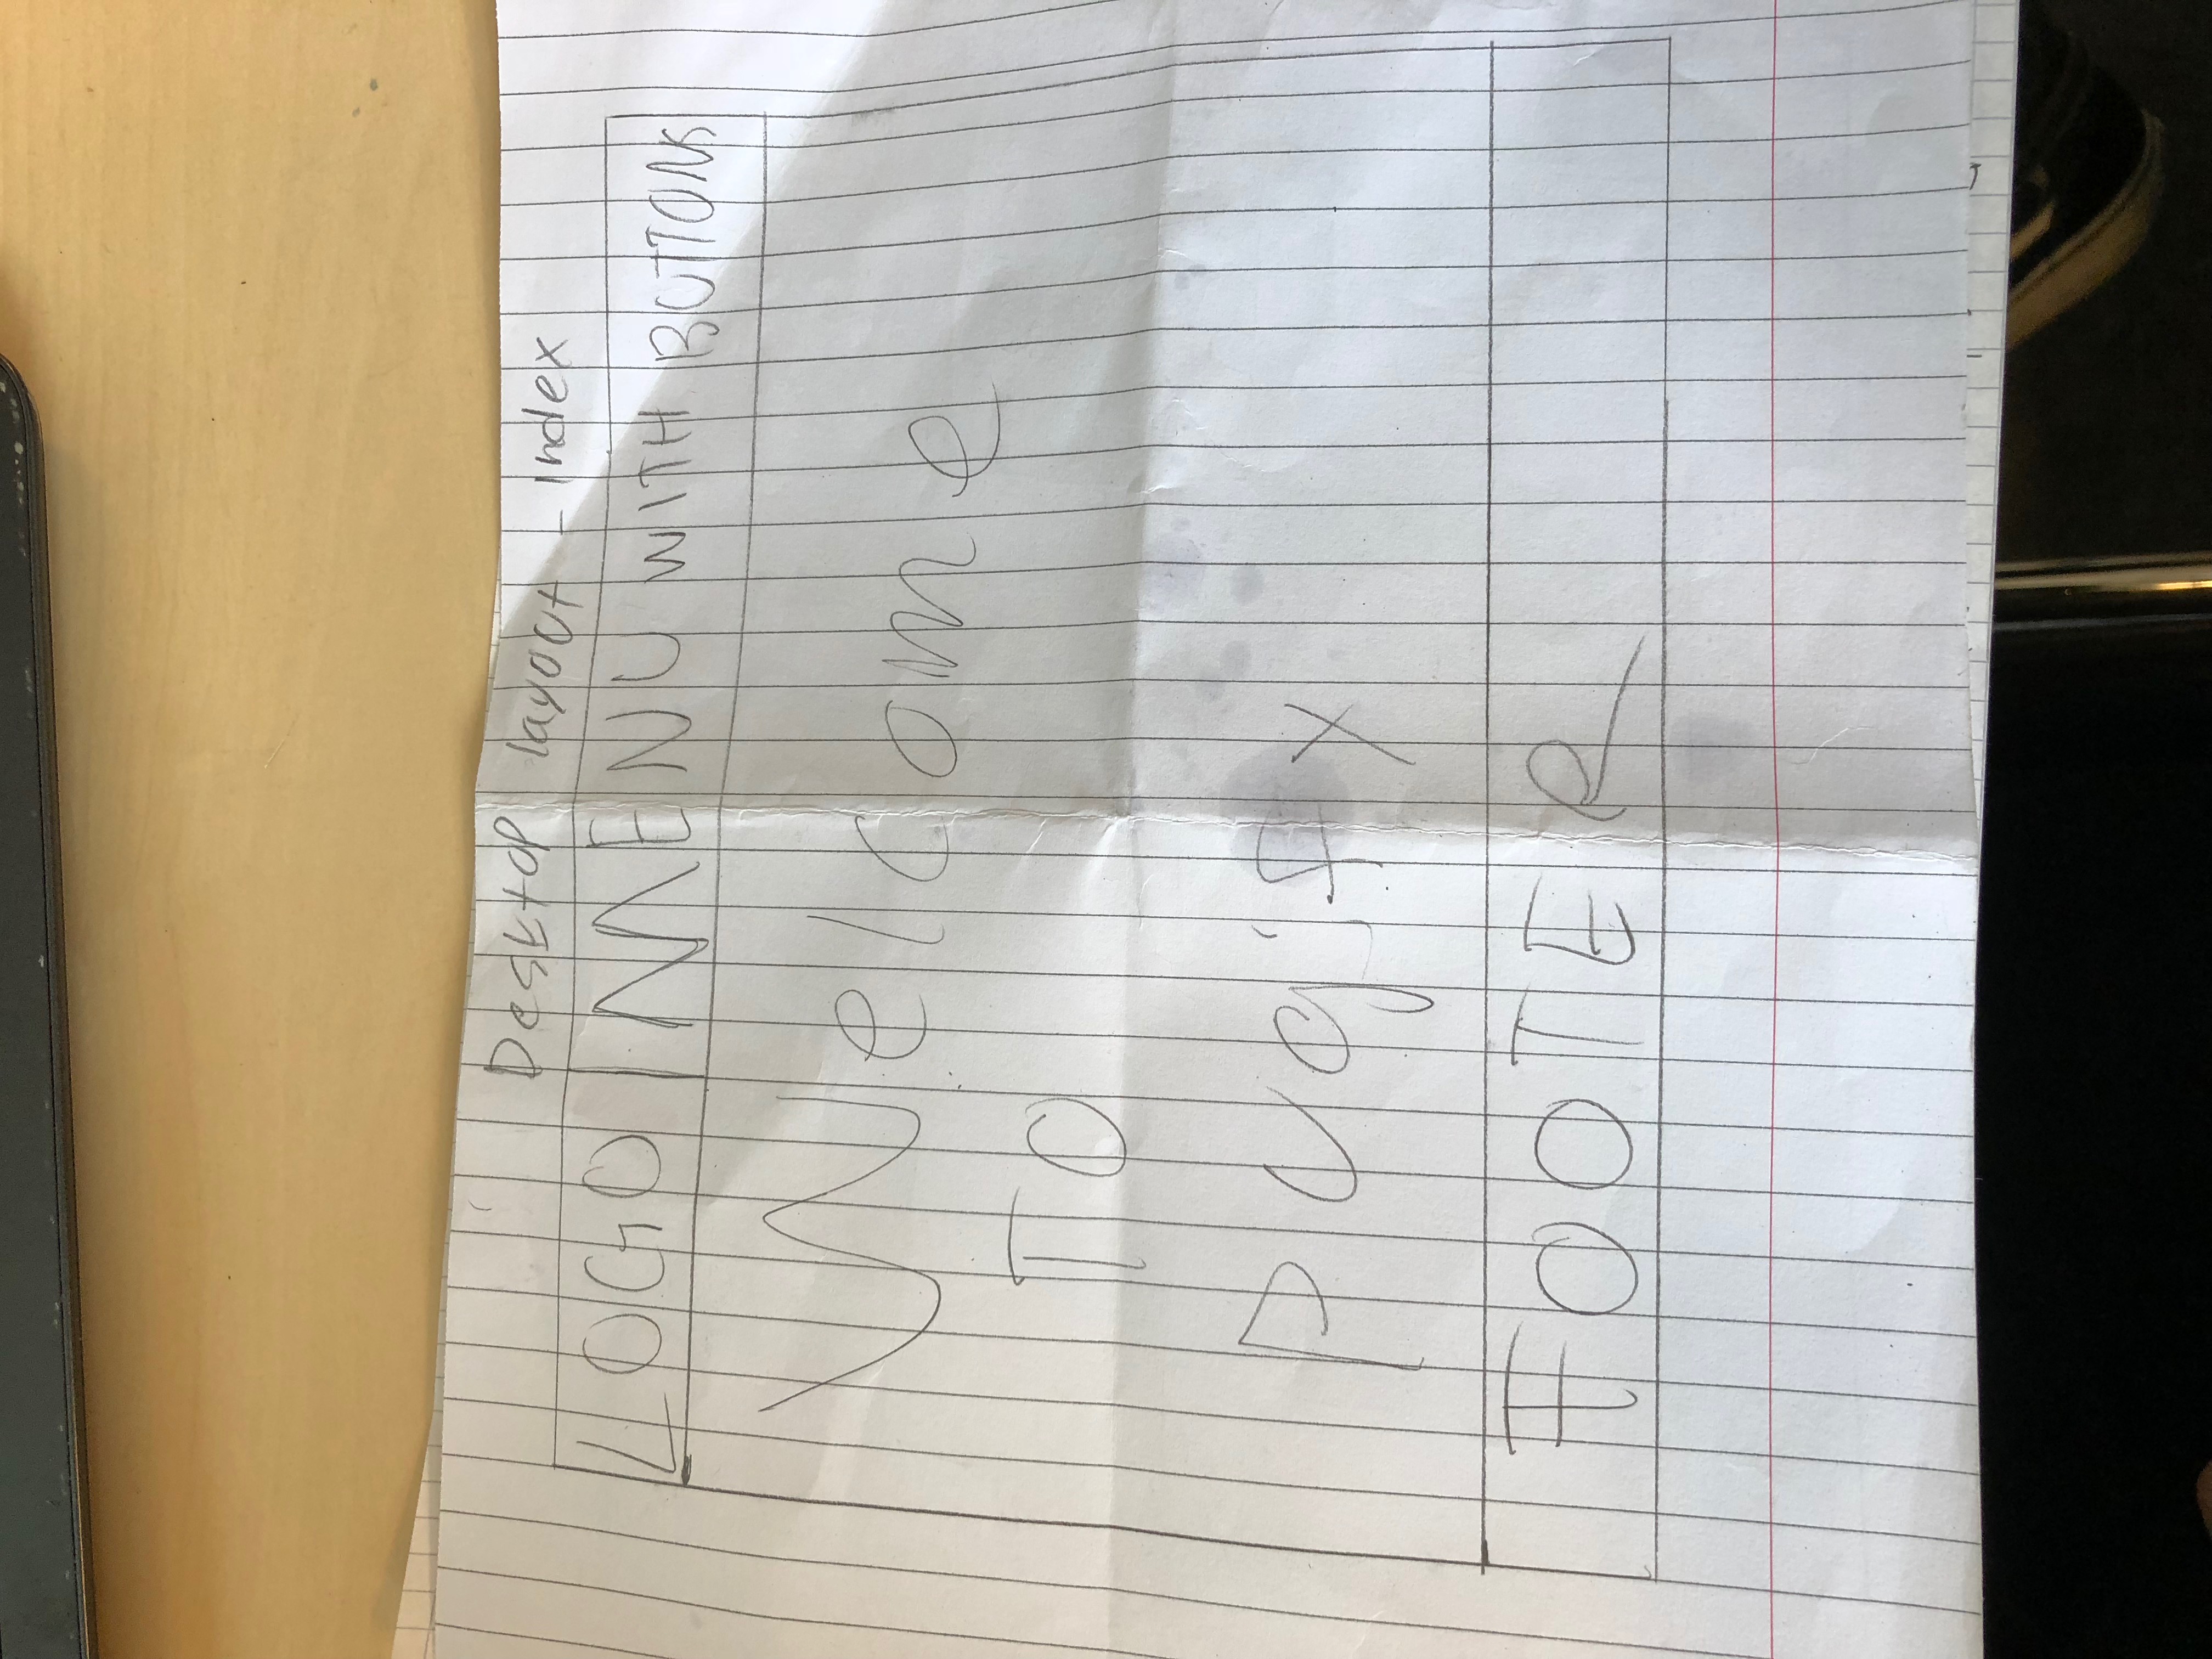 Desktop layout - index
LOGO | MENU WITH BUTTONS
Welcome
TO
pugify
FOOTER